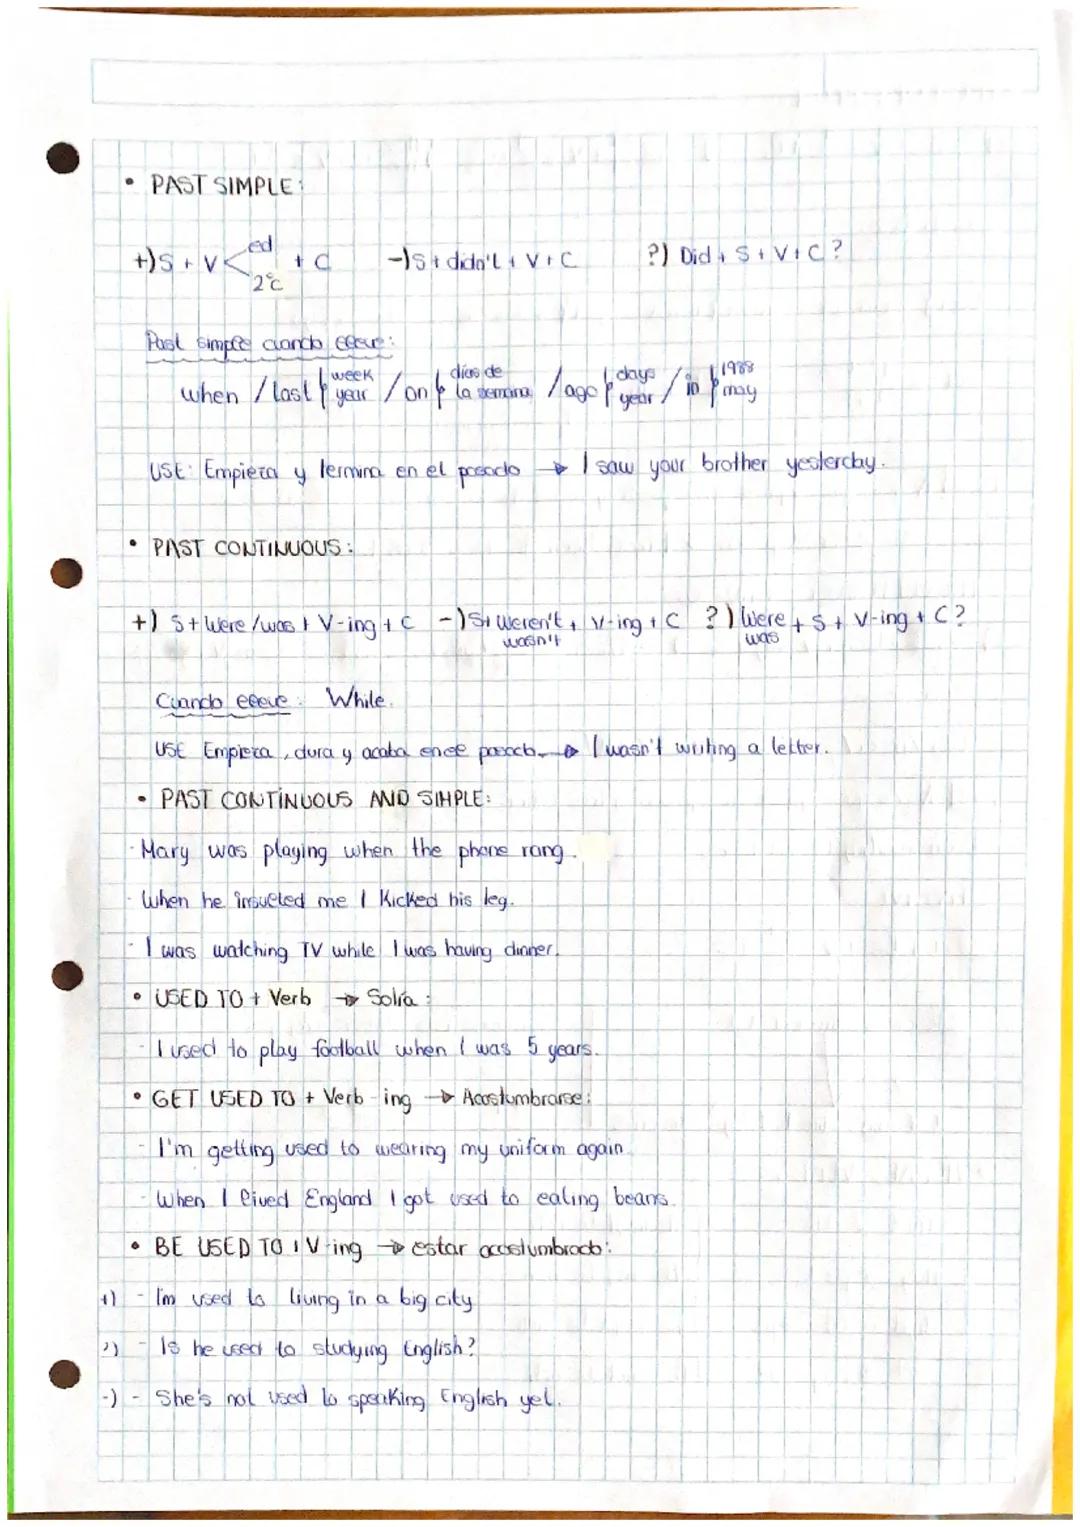 • PAST SIMPLE:
+) S + V < ed / 2ªc + C -) S + didn't + V + C ?) Did + S + V + C ?
Past simple cuando lleve:
when / last { week year / on { días de la semana / ago { days year / in { 1988 may
USE: Empieza y termina en el pasado → I saw your brother yesterday.
• PAST CONTINUOUS:
+) S + Were / was + V-ing + C -) S + Weren't + V-ing + C ?) Were + S + V-ing + C ?
wasn't was
Cuando lleve: While.
USE Empieza, dura y acaba en el pasado. → I wasn't writing a letter.
• PAST CONTINUOUS AND SIMPLE:
- Mary was playing when the phone rang.
- When he insulted me I Kicked his leg.
- I was watching TV while I was having dinner.
• USED TO + Verb → Solía:
- I used to play football when I was 5 years.
• GET USED TO + Verb-ing → Acostumbrarse:
- I'm getting used to wearing my uniform again.
- When I lived England I got used to eating beans.
• BE USED TO + V-ing → estar acostumbrado:
+) - I'm used to living in a big city
?) - Is he used to studying English?
-) - She's not used to speaking English yet.